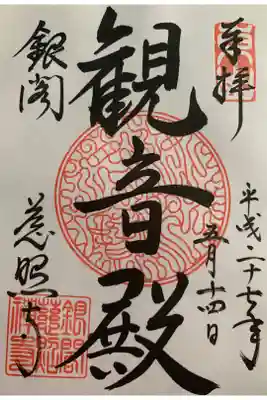 奉拝
平成二十七年
五月十四日
観音殿
銀閣
慈照寺